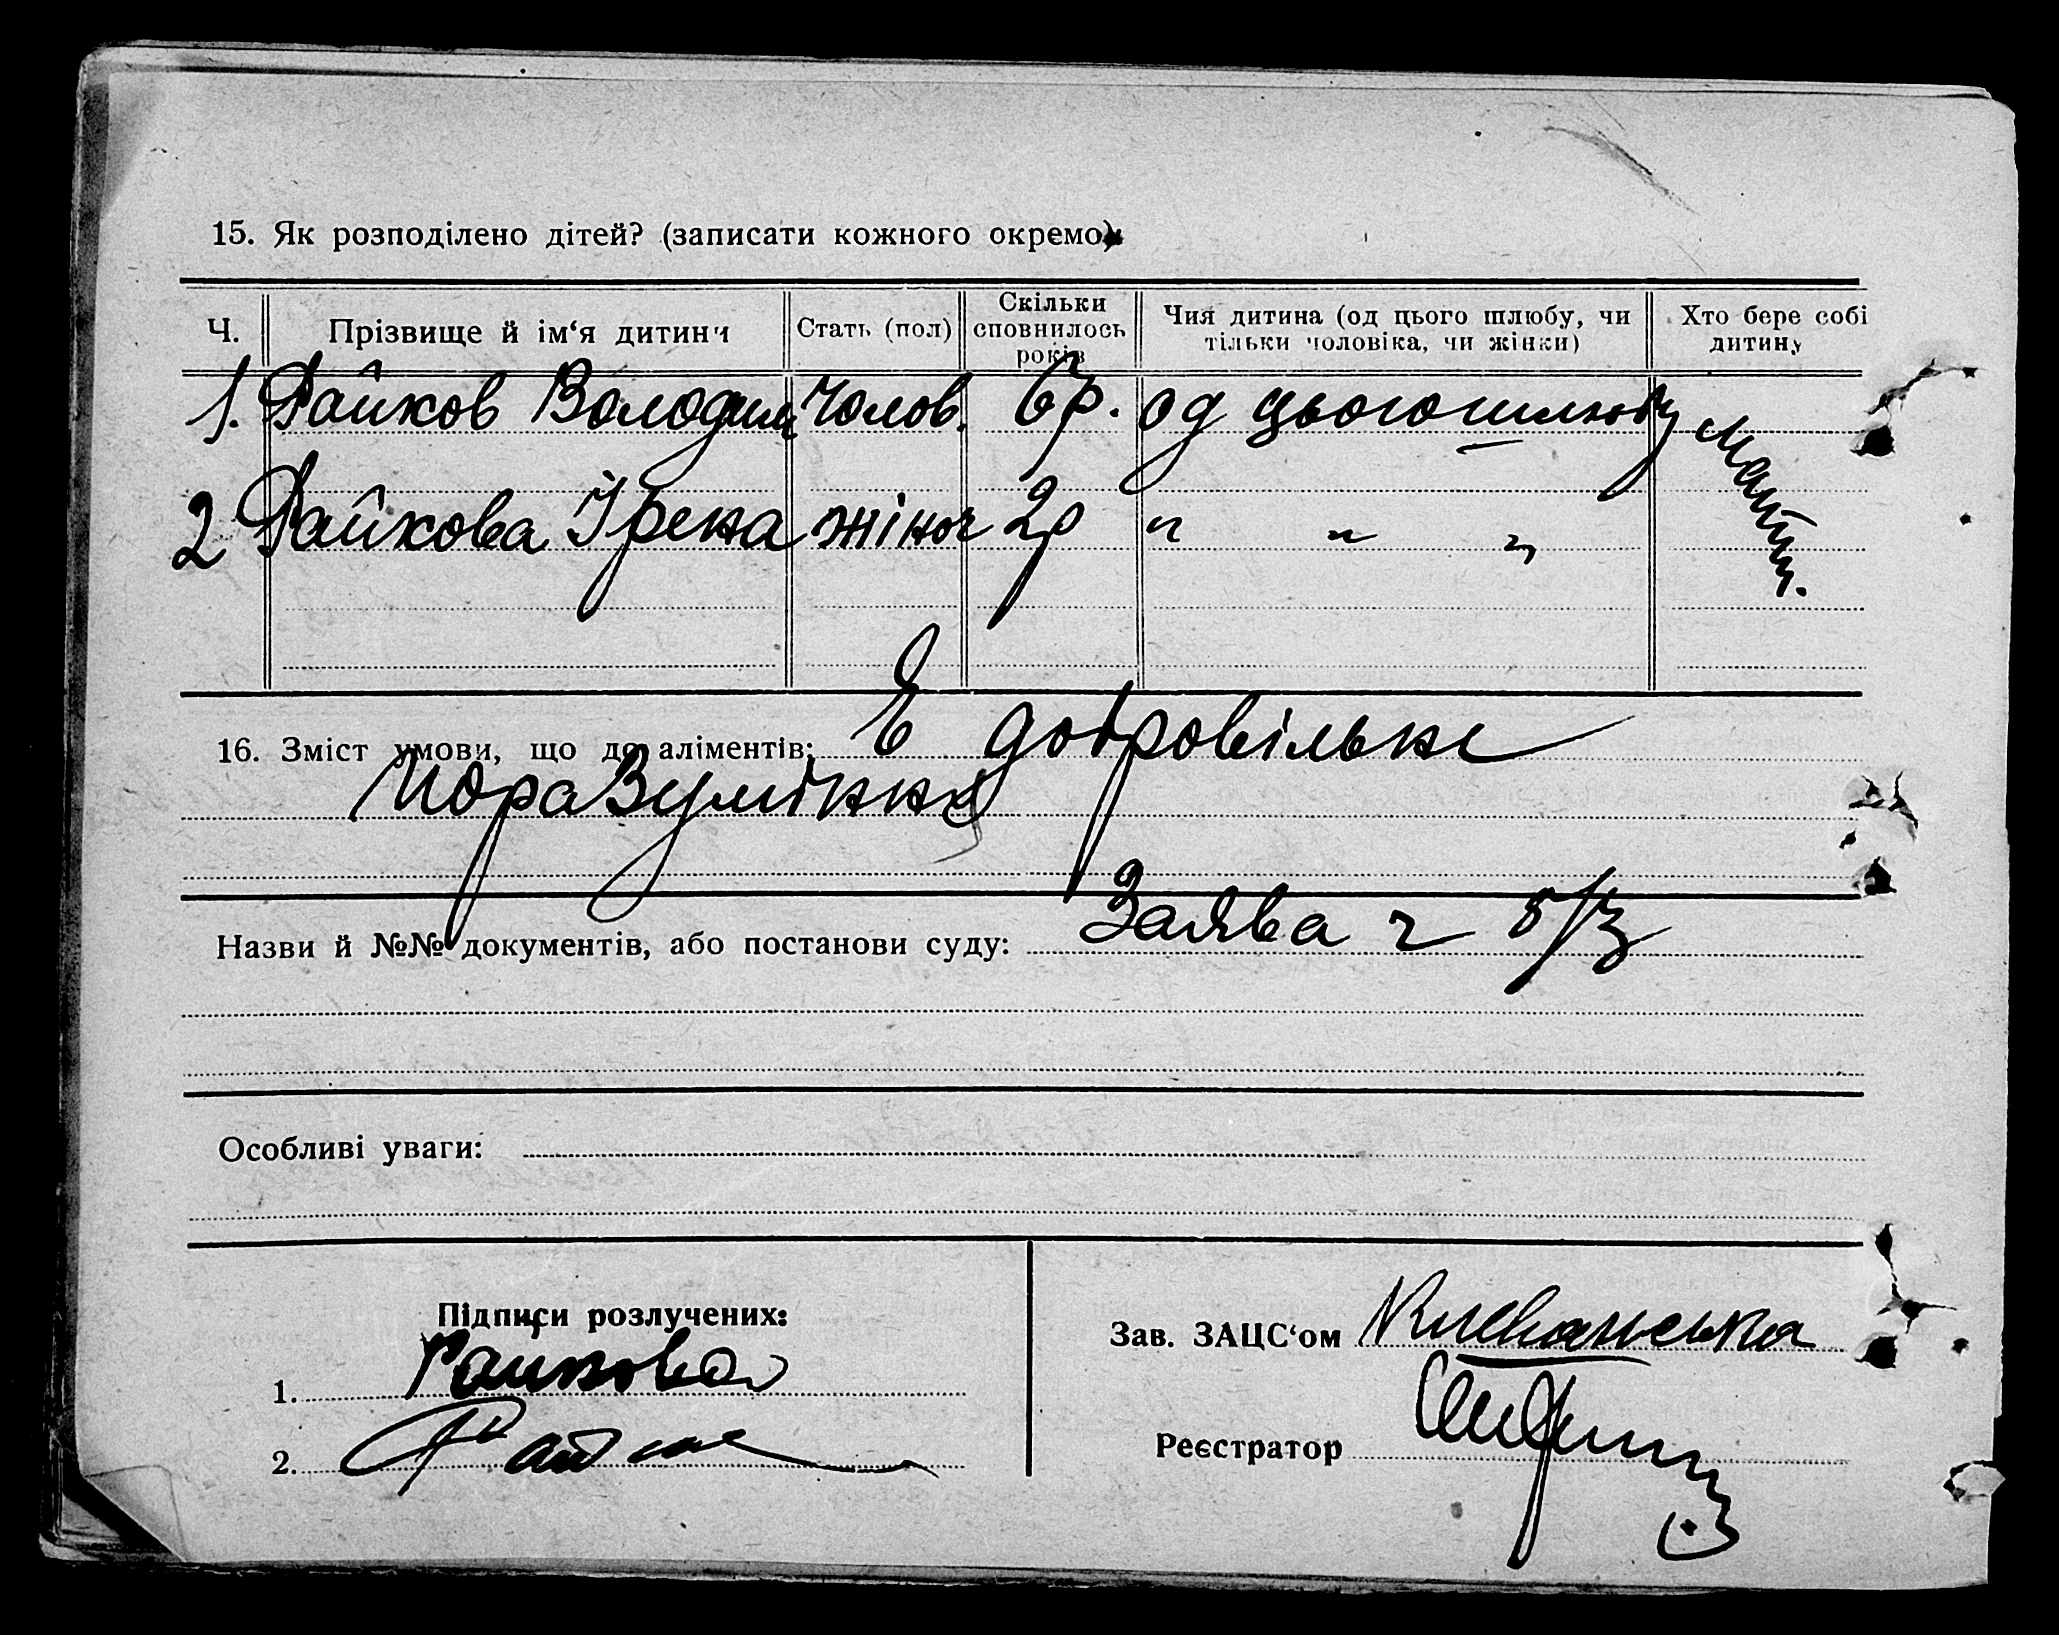 15. Як розподілено дітей? (записати кожного окремо)
Ч. Прізвище й ім‘я дитини Стать (пол) Скільки сповнилось років Чия дитина (од цього шлюбу, чи тільки чоловіка, чи жінки) Хто бере собі дитину
1. Райков Володим Чолов. 6р. од цього шлюбу мати.
2 Райкова Ірена жіноч 2р " " "
16. Зміст умови, що до аліментів: Є добровільне
поразумінне
Назви й №№ документів, або постанови суду: Заява ч 5/3
Особливі уваги:
Підписи розлучених:
1. Райкова
2.
Зав. ЗАЦС‘ом
Реєстратор